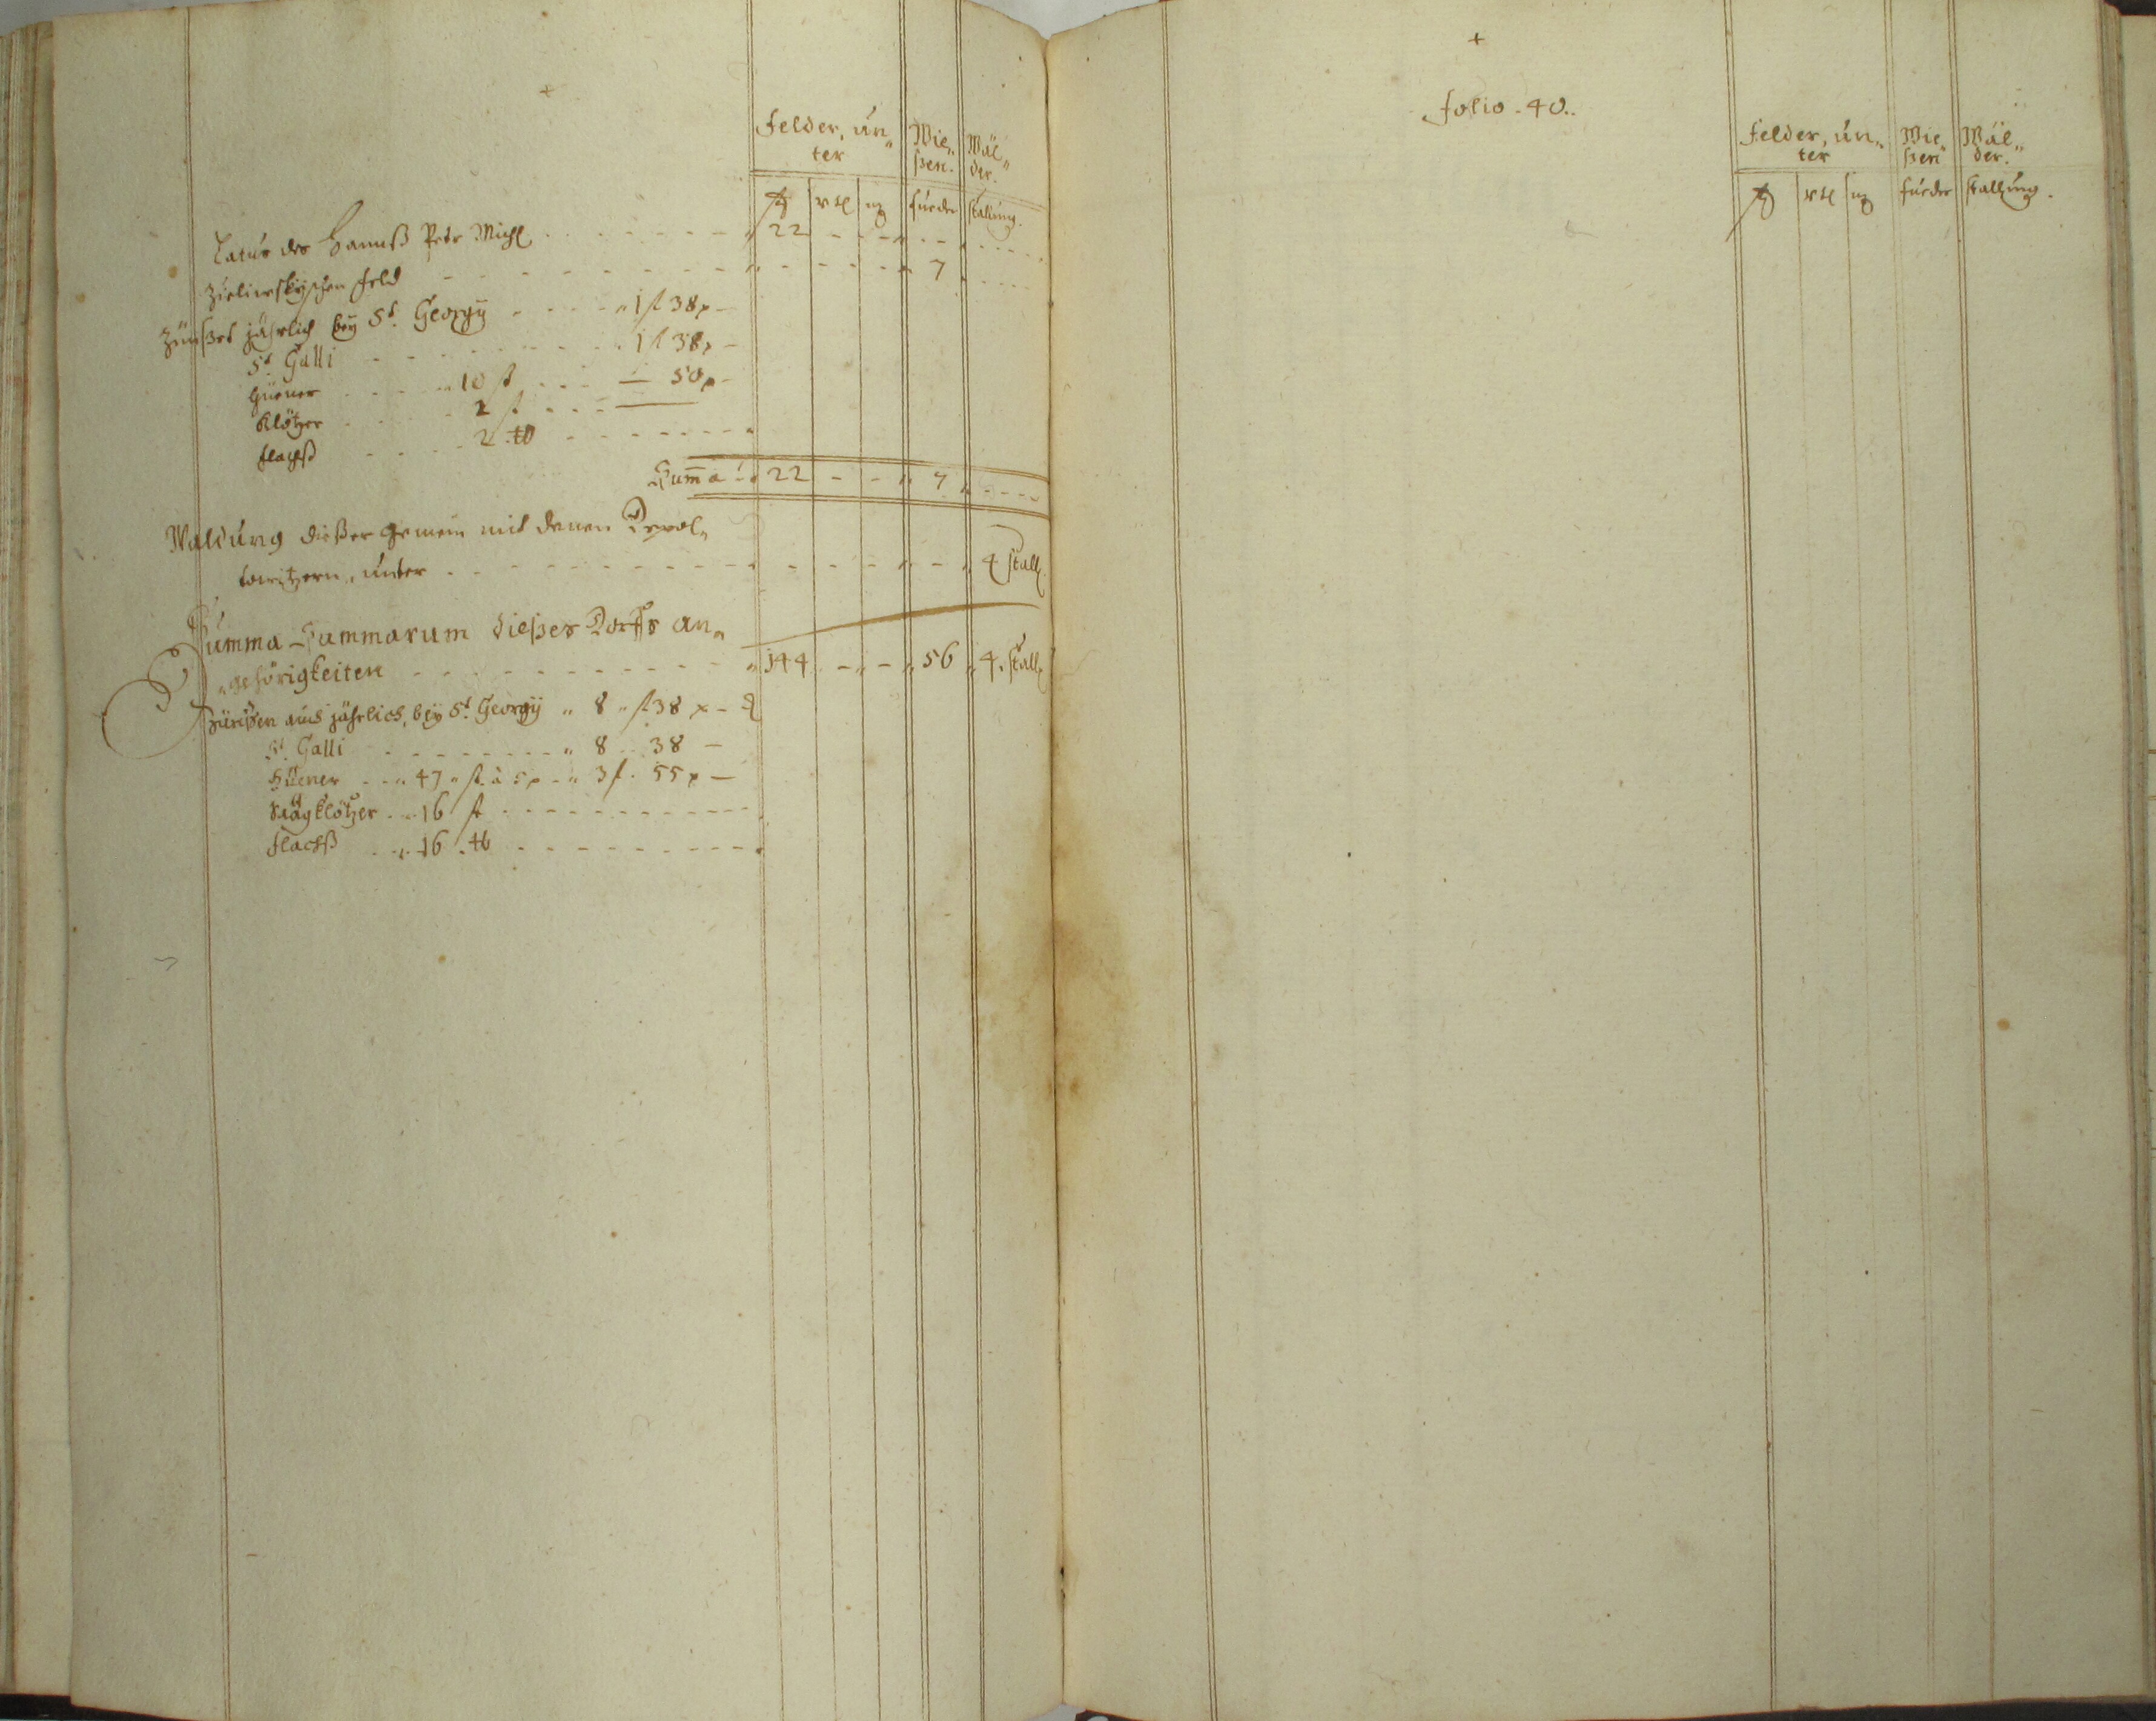 +
Felder, un„ Wie„ Wäl„
ter ßen. der.
fueder stallung.
Latus des Hannß Petr Michl 22 - -
Zieliwskyschen feld 7
Zünßet jährlich bey St. Georgy 1 f 38 x -
St. Galli 1 f 38 x -
Hüener 10 st — 50 x -
Klötzer 2 st
flachß 2 ℔
Suma 22 - - 7
Waldung dießer gemein mit denen
unter 4 Stall
Summa Summarum dießes Dorffs an„
„gehörigkeiten 144 - - 56 4. Stall
Zünßen auch jährlich, bey St. Georgy „ 8 „ f 38 x -
St. Galli „ 8 .. 38 —
Hüener „ 47 „ st. à 5 x „ 3 f. 55 x —
Sägklötzer 16 st
flachß 16 ℔
+
folio. 40..
Felder, un„ Wie„ Wäl„
ter ßen der.
fueder stallung.